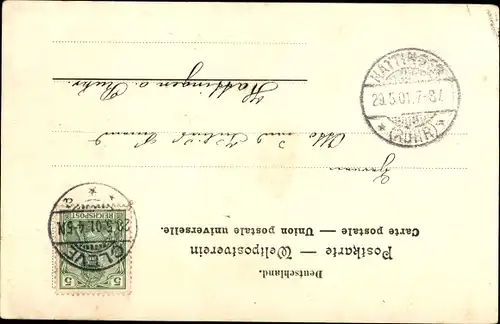 Deutschland.
Postkarte — Weltpostverein
Carte postale — Union postale universelle.
5 5
REICHSPOST
CLEVE
5.01.4-5N
a
Herren
Otto und
Hattingen a. Ruhr.
HATTINGEN
29.5.01.7-8V.
(RUHR)